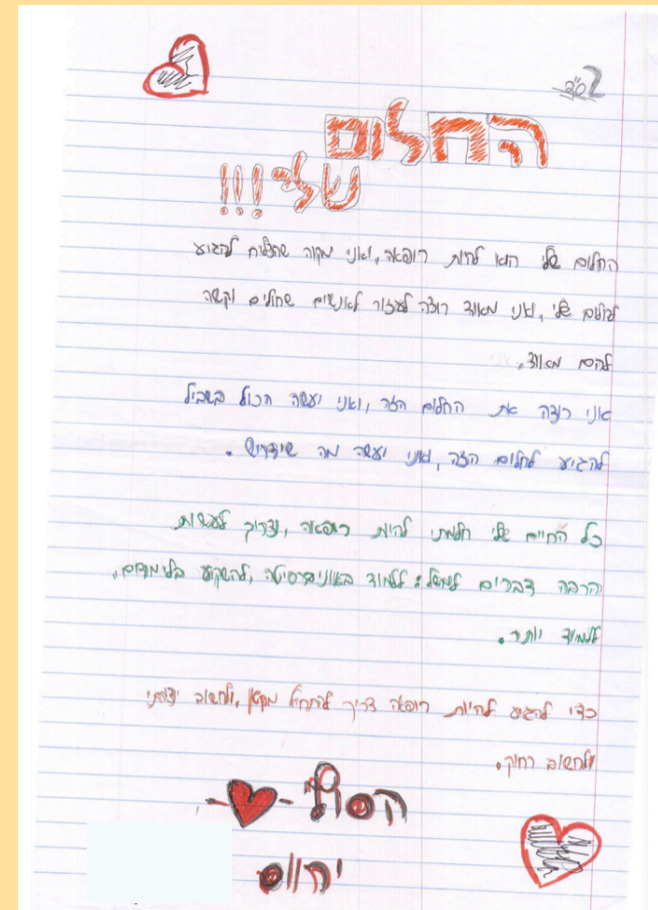 בס"ד
החלום
שלי!!!
החלום שלי הוא להיות רופאה, ואני מקווה שתצליח להגיע
לחלום שלי, ואני מאוד רוצה לעזור לאנשים שחולים וקשה
להם מאוד.
אני רוצה את החלום הזה, ואני יעשה הכול בשביל
להגיע לחלום הזה, ואני יעשה מה שידרוש.
כל החיים שלי חלמתי להיות רופאה, וצריך לעשות
הרבה דברים למשל: ללמוד באוניברסיטה, להשקיע בלימודים,
ללמוד יותר.
כדי להגיע להיות רופאה צריך להתחיל מקטן, ולחשוב
ולחשוב רחוק.
הסוף